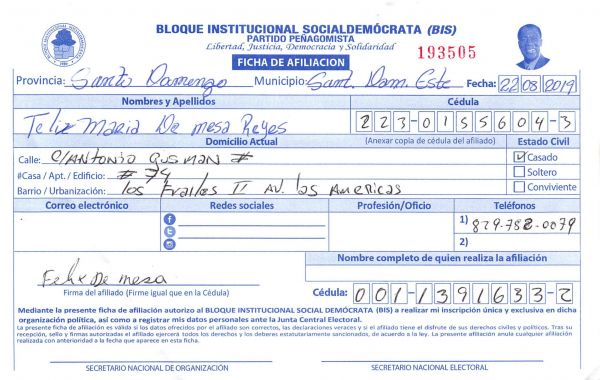 BLOQUE INSTITUCIONAL SOCIALDEMÓCRATA (BIS)
PARTIDO PEÑAGOMISTA
Libertad, Justicia, Democracia y Solidaridad
FICHA DE AFILIACION
193505
Provincia: Santo Domingo Municipio: Sant. Dom. Este Fecha: 22/08/2019
Nombres y Apellidos Cédula
Feliz Maria De mesa Reyes 223-0155604-3
Domicilio Actual (Anexar copia de cédula del afiliado) Estado Civil
Calle: C/ANTONIO GUSMAN #
☑ Casado
#Casa / Apt. / Edificio: # 74
Soltero
Barrio / Urbanización: los Frailes II AV. las Americas
Conviviente
Correo electrónico Redes sociales Profesión/Oficio Teléfonos
1) 829-782-0079
2)
Nombre completo de quien realiza la afiliación
Felix De mesa
Firma del afiliado (Firme igual que en la Cédula)
Cédula: 001-1391633-2
Mediante la presente ficha de afiliación autorizo al BLOQUE INSTITUCIONAL SOCIAL DEMÓCRATA (BIS) a realizar mi inscripción única y exclusiva en dicha
organización política, así como a registrar mis datos personales ante la Junta Central Electoral.
La presente ficha de afiliación es válida si los datos ofrecidos por el afiliado son correctos, las declaraciones veraces y si el afiliado tiene el disfrute de sus derechos civiles y políticos. Tras su
recepción, sello y firmas autorizadas el afiliado ejercerá todos los derechos y los deberes estatutariamente sancionados, de acuerdo a la ley. La presente afiliación anula cualquier afiliación
realizada con anterioridad a la fecha que aparece en esta ficha.
SECRETARIO NACIONAL DE ORGANIZACIÓN SECRETARIO NACIONAL ELECTORAL